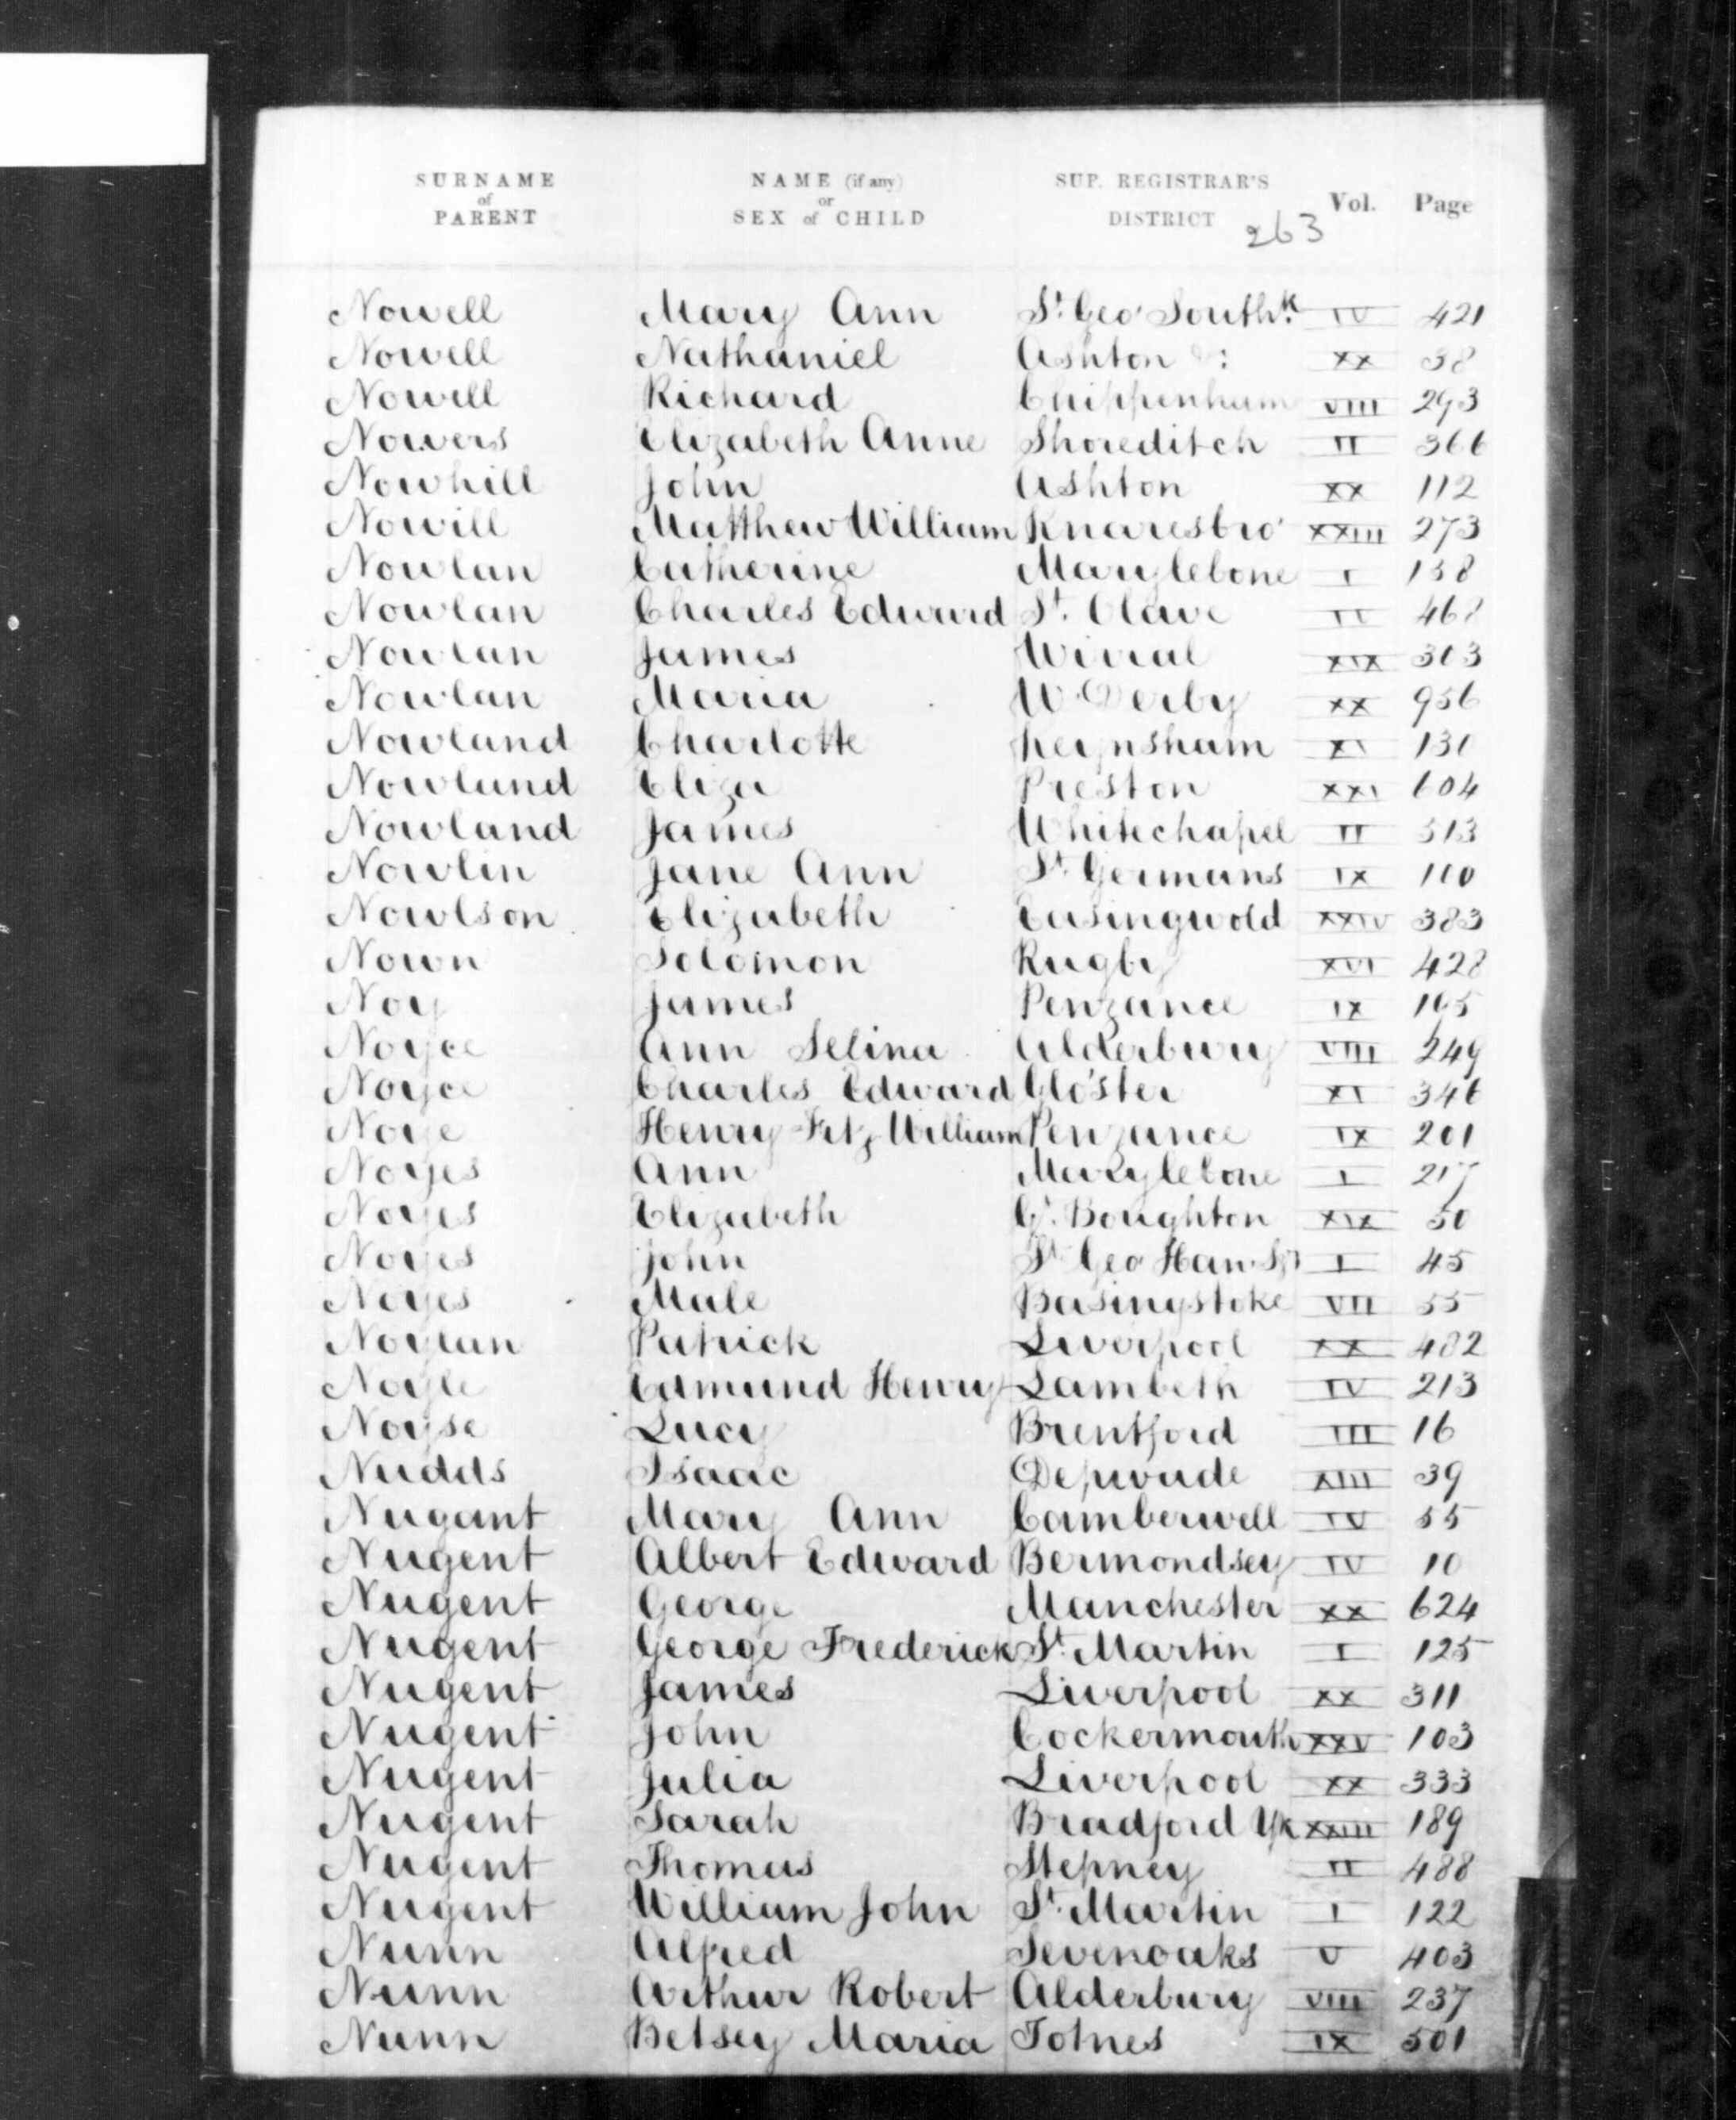 SURNAME of PARENT NAME (if any) or SEX of CHILD SUP. REGISTRAR'S DISTRICT Vol. Page
263
Nowell Mary Ann St Geo Southk IV 421
Nowell Nathaniel Ashton XX 38
Nowell Richard Chippenham VIII 293
Nowers Elizabeth Anne Shoreditch II 366
Nowhill John Ashton XX 112
Nowill Matthew William Knaresbro' XXIII 273
Nowlan Catherine Marylebone I 138
Nowlan Charles Edward St. Olave IV 468
Nowlan James Wirral XIX 303
Nowlan Maria W Derby XX 956
Nowland Charlotte Keynsham XI 131
Nowland Eliza Preston XXI 604
Nowland James Whitechapel II 513
Nowlin Jane Ann St. Germans IX 110
Nowlson Elizabeth Easingwold XXIV 383
Nown Solomon Rugby XVI 428
Noy James Penzance IX 195
Noyce Ann Selina Alderbury VIII 249
Noyce Charles Edward Glo'ster XI 346
Noye Henry Fitz William Penzance IX 201
Noyes Ann Marylebone I 217
Noyes Elizabeth Gt. Boughton XIX 50
Noyes John St Geo Han Sq I 45
Noyes Male Basingstoke VII 55
Noylan Patrick Liverpool XX 482
Noyle Edmund Henry Lambeth IV 213
Noyse Lucy Brentford III 16
Nudds Isaac Depwade XIII 39
Nugant Mary Ann Camberwell IV 55
Nugent Albert Edward Bermondsey IV 10
Nugent George Manchester XX 624
Nugent George Frederick St. Martin I 125
Nugent James Liverpool XX 311
Nugent John Cockermouth XXV 103
Nugent Julia Liverpool XX 333
Nugent Sarah Bradford Yk XXIII 189
Nugent Thomas Stepney II 488
Nugent William John St. Martin I 122
Nunn Alfred Sevenoaks V 403
Nunn Arthur Robert Alderbury VIII 237
Nunn Betsey Maria Totnes IX 501